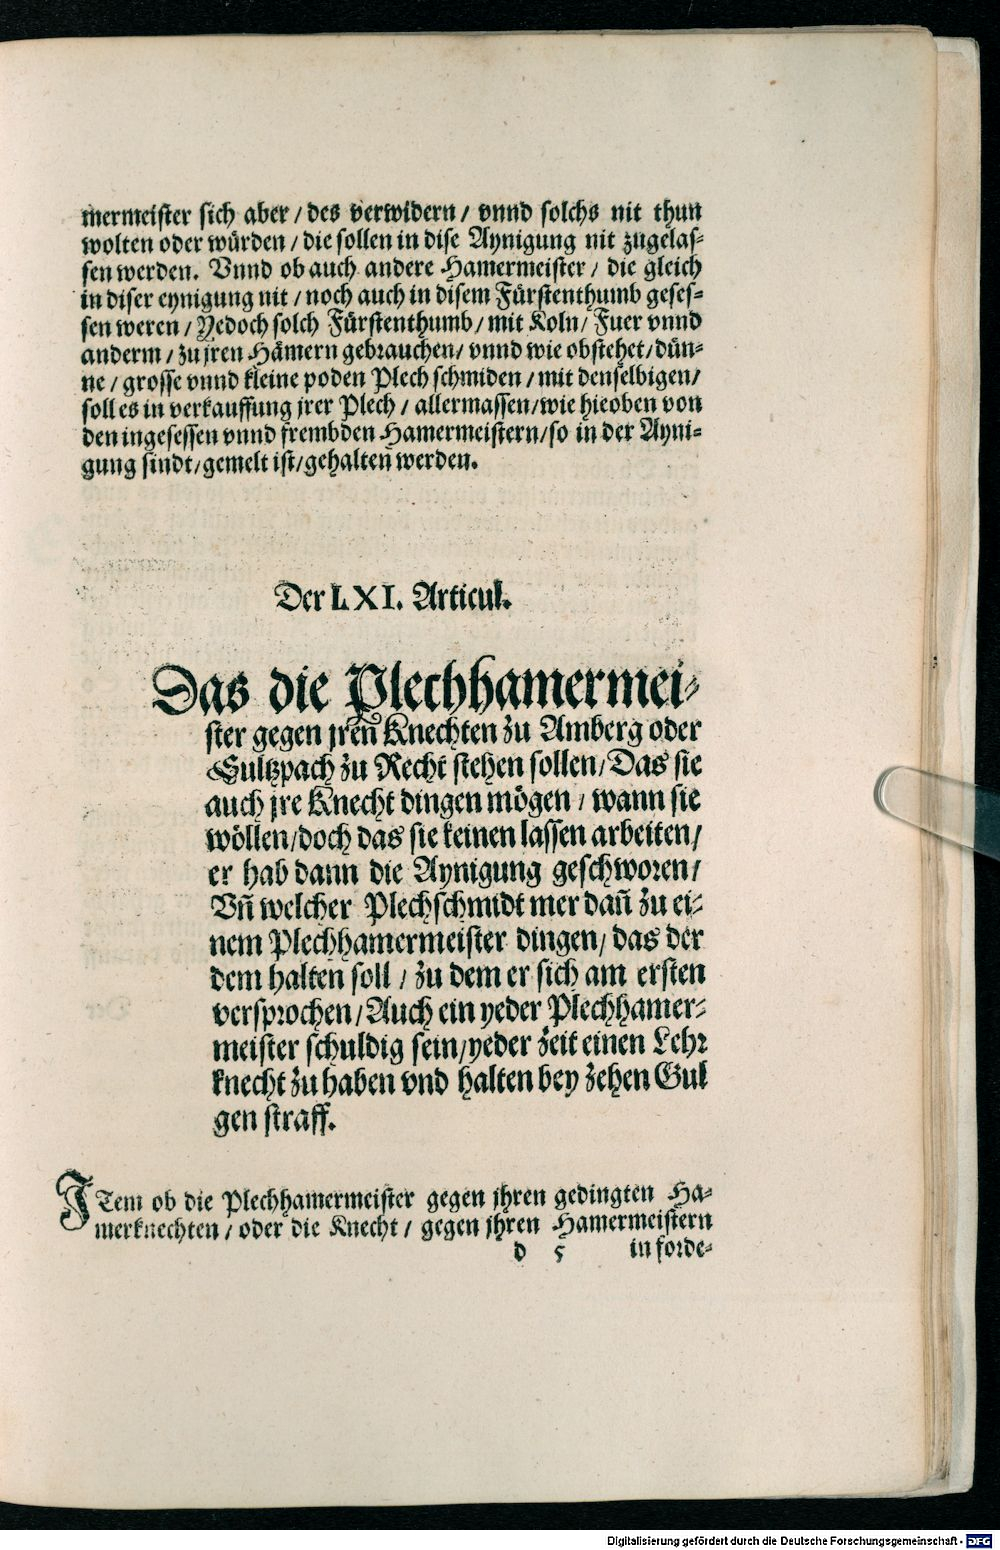 mermeister sich aber / des verwidern / vnnd solchs nit thun
wolten oder würden / die sollen in dise Aynigung nit zugelas-
sen werden. Vnnd ob auch andere Hamermeister / die gleich
in diser eynigung nit / noch auch in disem Fürstenthumb geses-
sen weren / Yedoch solch Fürstenthumb / mit Koln / Fuer vnnd
anderm / zu jren Hämern gebrauchen / vnnd wie obstehet / dün-
ne / grosse vnnd kleine poden Plech schmiden / mit denselbigen /
soll es in verkauffung jrer Plech / allermassen / wie hieoben von
den ingesessen vnnd frembden Hamermeistern / so in der Ayni-
gung sindt / gemelt ist / gehalten werden.
Der LXI. Articul.
Das die Plechhamermei-
ster gegen jren Knechten zu Amberg oder
Sultzpach zu Recht stehen sollen / Das sie
auch jre Knecht dingen mögen / wann sie
wöllen / doch das sie keinen lassen arbeiten /
er hab dann die Aynigung geschworen /
Vñ welcher Plechschmidt mer dañ zu ei-
nem Plechhamermeister dingen / das der
dem halten soll / zu dem er sich am ersten
versprochen / Auch ein yeder Plechhamer-
meister schuldig sein / yeder zeit einen Lehr
knecht zu haben vnd halten bey zehen Gul
gen straff.
ITem ob die Plechhamermeister gegen jhren gedingten Ha-
merknechten / oder die Knecht / gegen jhren Hamermeistern
d 5 in forde-
Digitalisierung gefördert durch die Deutsche Forschungsgemeinschaft - DFG